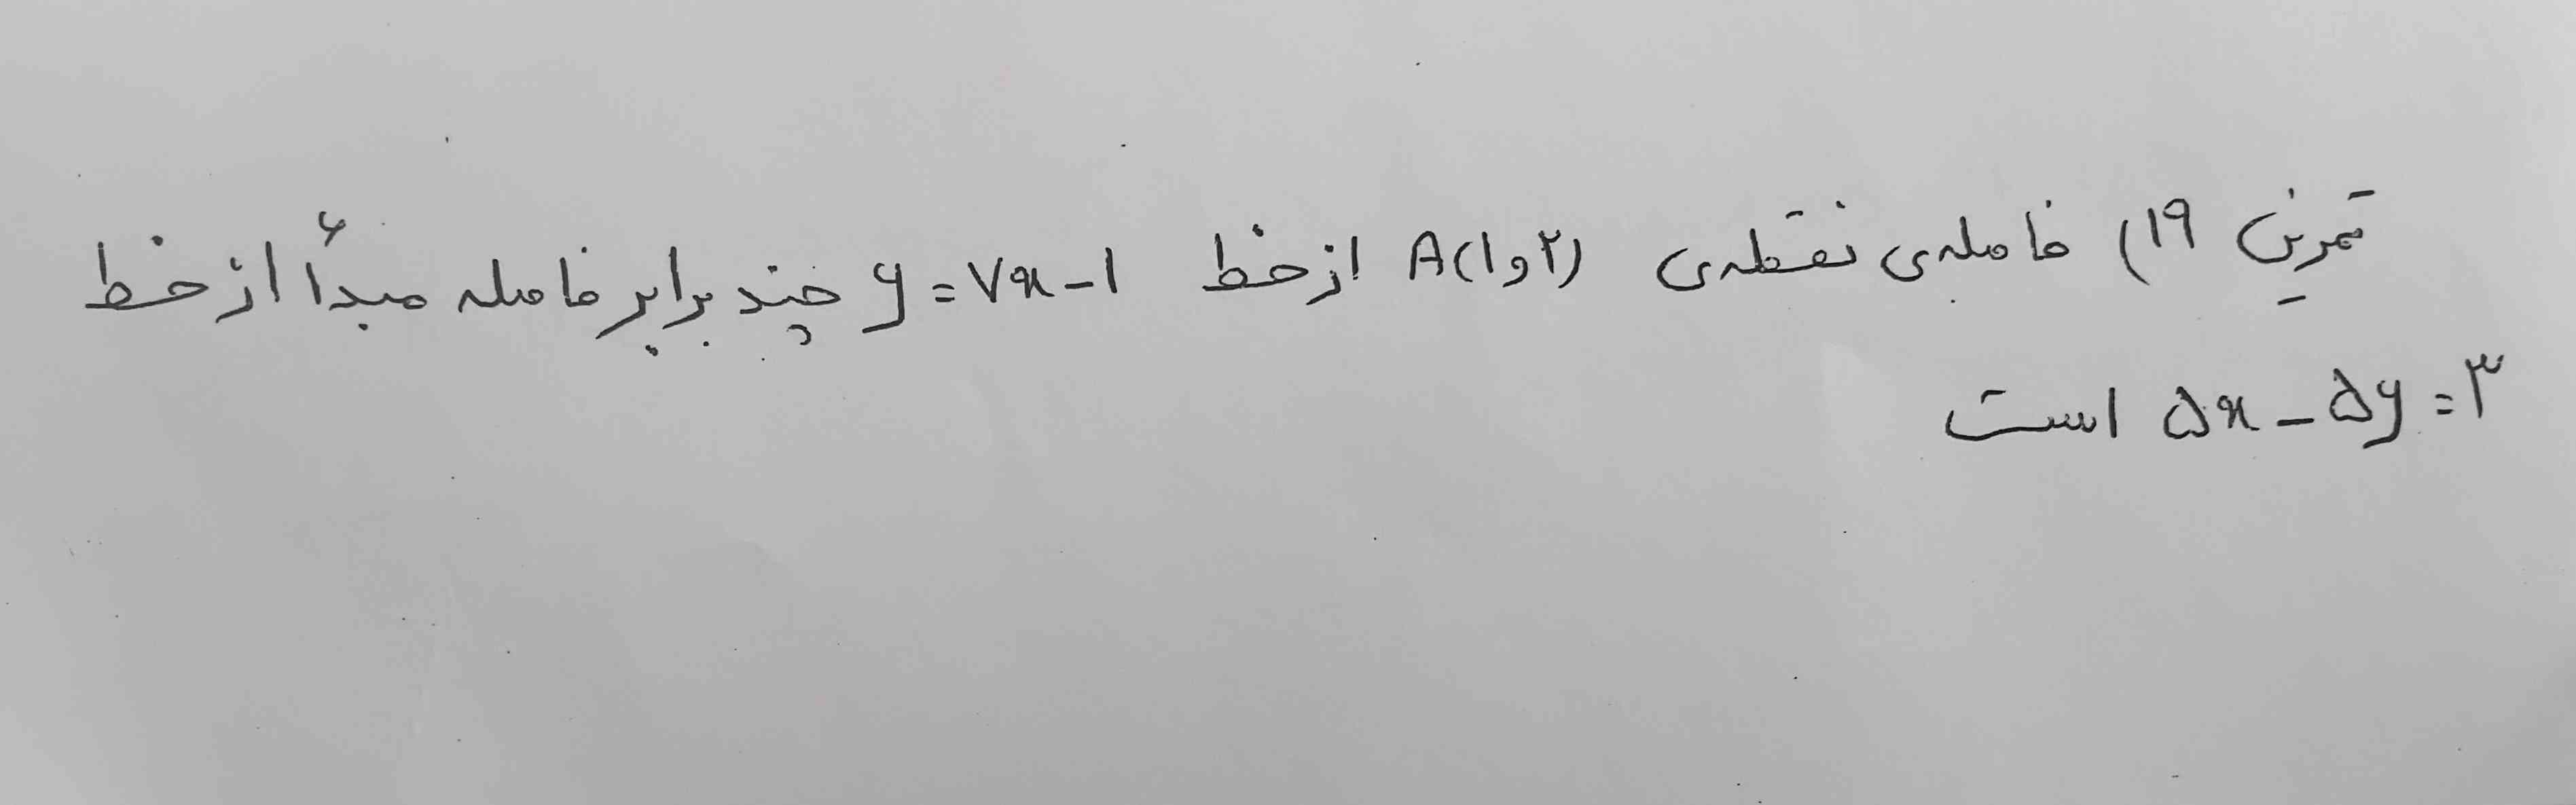 تمرین ۱۹) فاصله‌ی نقطه‌ی A(۱و۲) از خط y=۷x-۱ چند برابر فاصله مبدأ از خط
۵x-۵y=۳ است